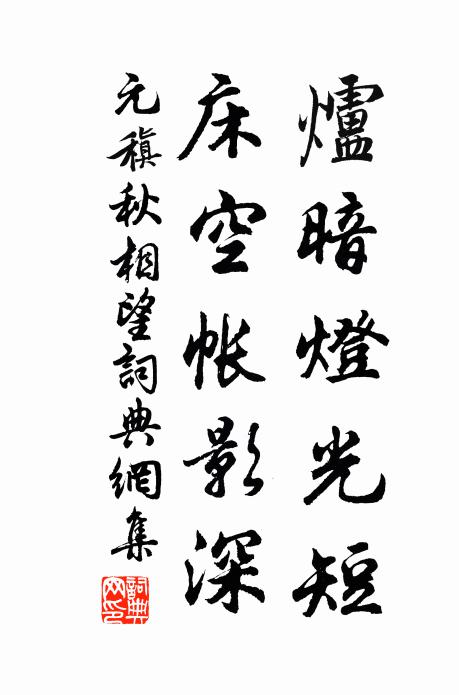 爐暗燈光短
床空帐影深
元稹秋相望詞典網集
詞典網印